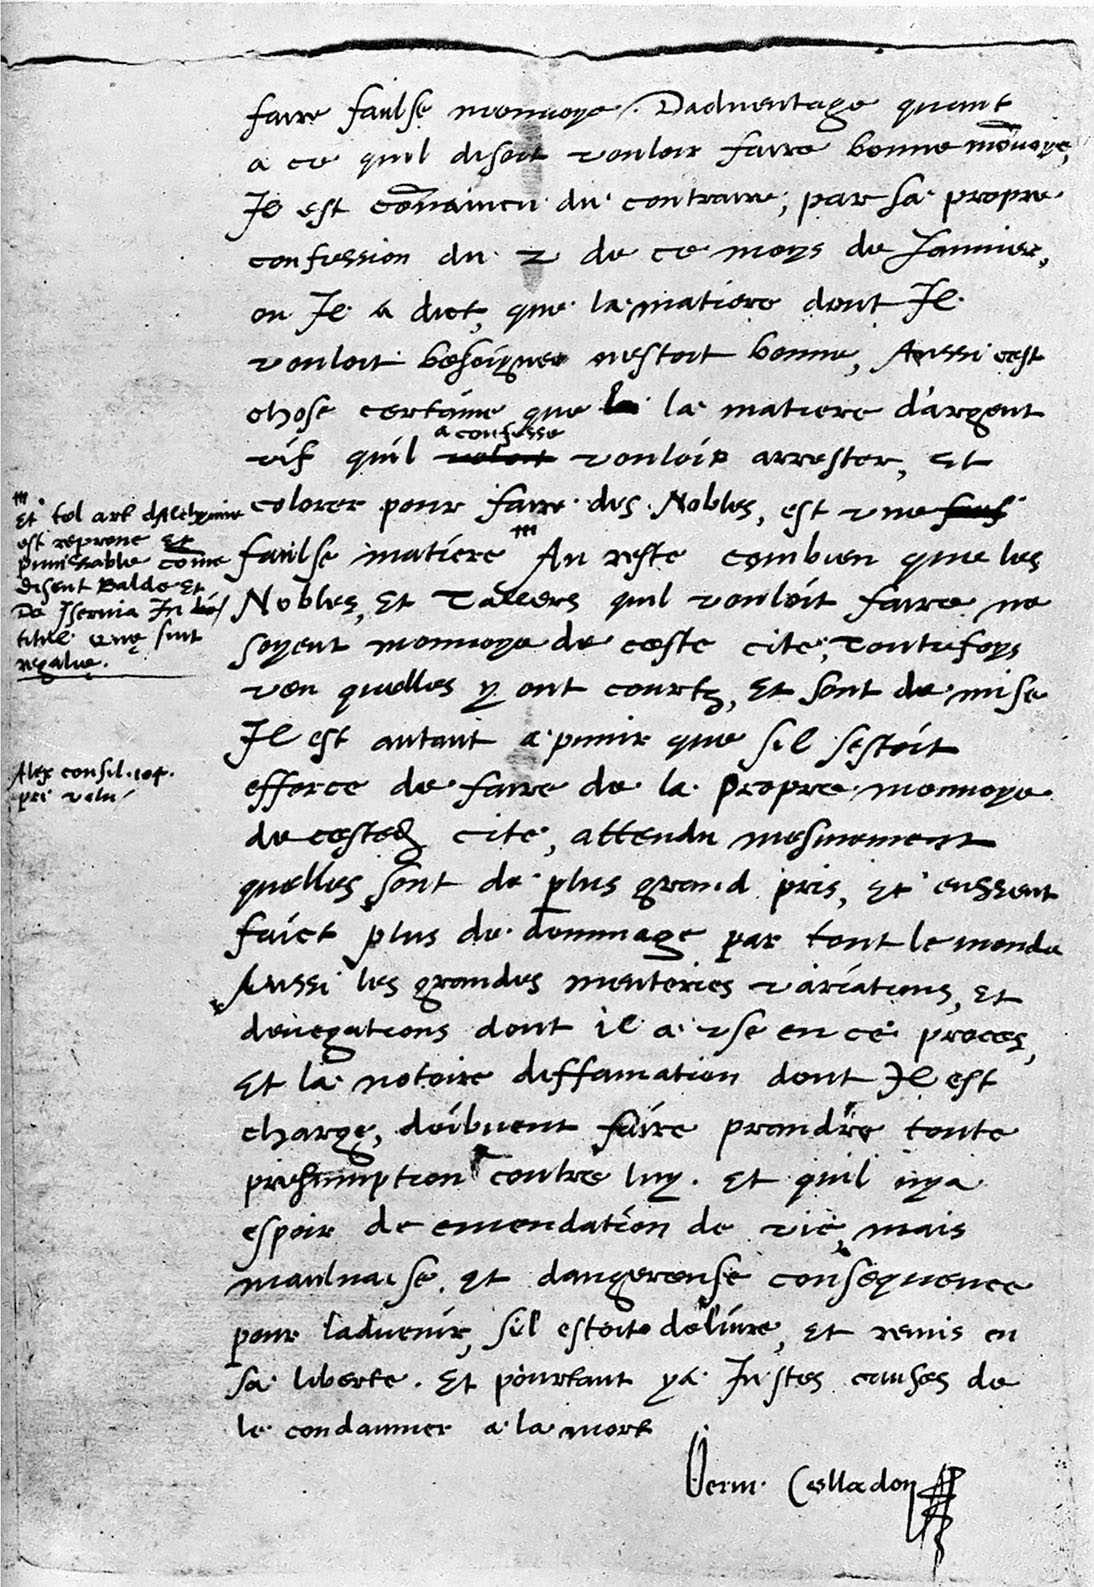 faire faulse monnoye. Dadventage quant
a ce quil disoit vouloir faire bonne mōnoye,
Il est cōvaincu du contraire, par sa propre
confession du 2 de ce moys de Janvier,
ou Il a dict, que la matiere dont Il
vouloit besoigner nestoit bonne, Aussi cest
chose certaine que la matiere dargent
vif quil a confesse vouloir arrester, Et
colorer pour faire des Nobles, est une
faulse matiere Au reste combien que les
Nobles, Et Tallers quil vouloit faire ne
soyent monnoye de ceste cite, Toutefoys
veu quelles y ont courtz, Et sont de mise
Il est autant a punir que sil sestoit
efforce de faire de la propre monnoye
de ceste cite, attendu mesmement
quelles sont de plus grand pris, Et eussent
faict plus de dommage par tout le monde
Aussi les grandes menteries variations, Et
denegations dont il a use en ce proces,
Et la notoire diffamation dont Il est
charge, doibvent faire prandre toute
presumption contre luy. Et quil nya
espoir de emendation de vie, mais
maulvaise, Et dangereuse consequence
pour ladvenir, sil estoit delivre, Et remis en
sa liberte. Et pourtant ya Justes causes de
le condamner a la mort
Germ. Colladon
Et tel art dAlchymie
est reprouve Et
punissable cōme
disent Balde Et
De Isernia In
titul. Que sint
regaliae.
Alex consil.